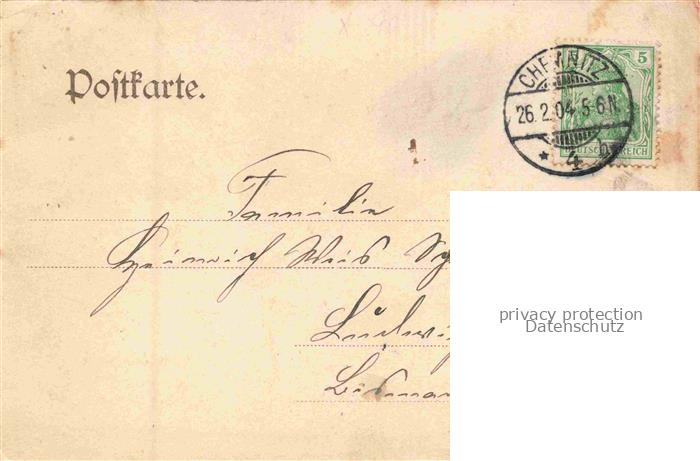 Postkarte.
CHEMNITZ
26.2.04.5-6N.
* 4
5
DEUTSCHES REICH
Familie
Heinrich Weis
privacy protection
Datenschutz